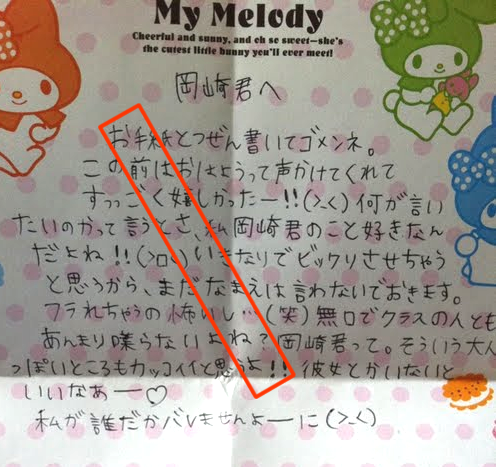 My Melody
Cheerful and sunny, and oh so sweet—she's
the cutest little bunny you'll ever meet!
岡崎君へ
お手紙とつぜん書いてゴメンネ。
この前はおはようって声かけてくれて
すっっごく嬉しかったー!!(>_<)何が言い
たいのかって言うとさ、私岡崎君のこと好きなん
だよね!!(>□<)いきなりでビックリさせちゃう
と思うから、まだなまえは言わないでおきます。
フラれちゃうの怖いし…(笑)無口でクラスの人とも
あんまり喋らないよね?岡崎君って。そういう大人
っぽいところもカッコイイと思うよ!!彼女とかいないと
いいなあー♡
私が誰だかバレませんよーに(>_<)